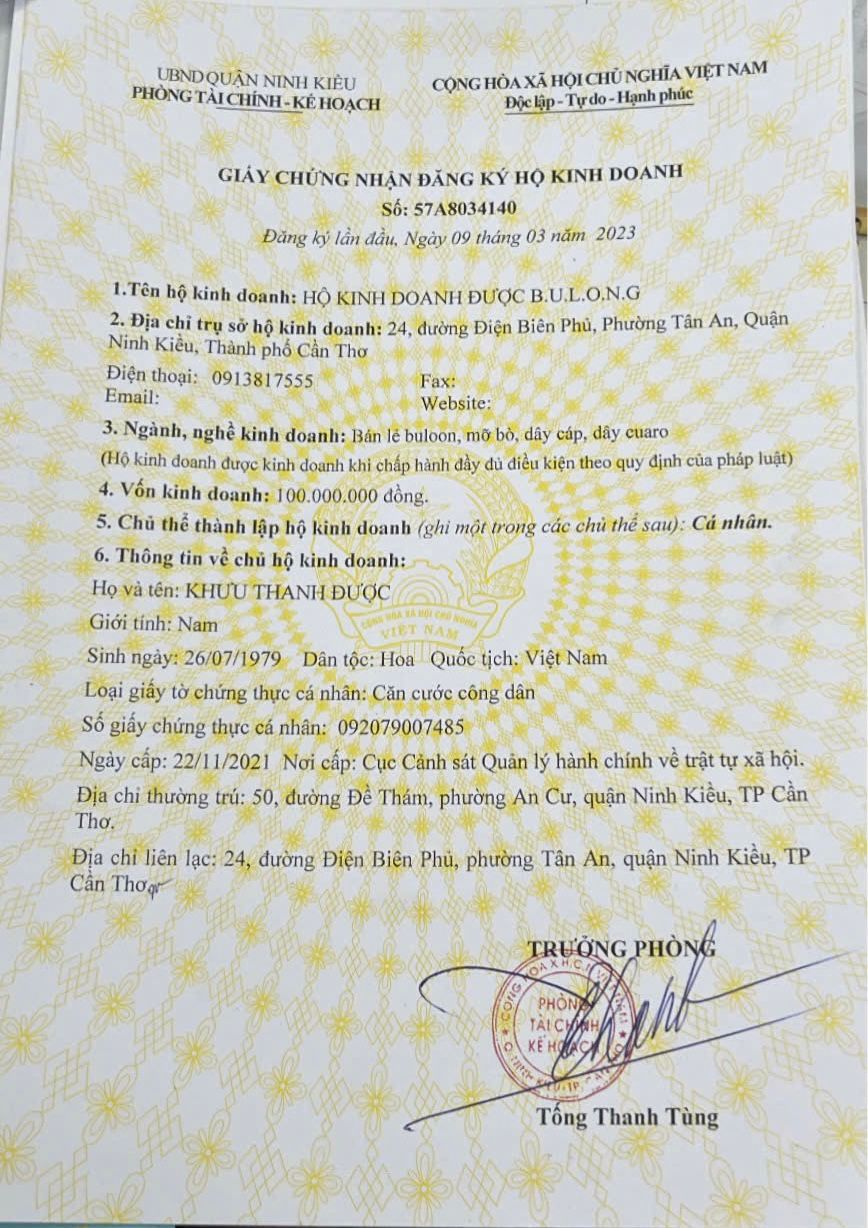 UBND QUẬN NINH KIỀU
PHÒNG TÀI CHÍNH - KẾ HOẠCH
CỘNG HÒA XÃ HỘI CHỦ NGHĨA VIỆT NAM
Độc lập - Tự do - Hạnh phúc
GIẤY CHỨNG NHẬN ĐĂNG KÝ HỘ KINH DOANH
Số: 57A8034140
Đăng ký lần đầu, Ngày 09 tháng 03 năm 2023
1.Tên hộ kinh doanh: HỘ KINH DOANH ĐƯỢC B.U.L.O.N.G
2. Địa chỉ trụ sở hộ kinh doanh: 24, đường Điện Biên Phủ, Phường Tân An, Quận
Ninh Kiều, Thành phố Cần Thơ
Điện thoại: 0913817555 Fax:
Email: Website:
3. Ngành, nghề kinh doanh: Bán lẻ buloon, mỡ bò, dây cáp, dây cuaro
(Hộ kinh doanh được kinh doanh khi chấp hành đầy đủ điều kiện theo quy định của pháp luật)
4. Vốn kinh doanh: 100.000.000 đồng.
5. Chủ thể thành lập hộ kinh doanh (ghi một trong các chủ thể sau): Cá nhân.
6. Thông tin về chủ hộ kinh doanh:
Họ và tên: KHƯU THANH ĐƯỢC
Giới tính: Nam
CỘNG HÒA XÃ HỘI CHỦ NGHĨA
VIỆT NAM
Sinh ngày: 26/07/1979 Dân tộc: Hoa Quốc tịch: Việt Nam
Loại giấy tờ chứng thực cá nhân: Căn cước công dân
Số giấy chứng thực cá nhân: 092079007485
Ngày cấp: 22/11/2021 Nơi cấp: Cục Cảnh sát Quản lý hành chính về trật tự xã hội.
Địa chỉ thường trú: 50, đường Đề Thám, phường An Cư, quận Ninh Kiều, TP Cần
Thơ.
Địa chỉ liên lạc: 24, đường Điện Biên Phủ, phường Tân An, quận Ninh Kiều, TP
Cần Thơ
TRƯỞNG PHÒNG
PHÒNG
TÀI CHÍNH
KẾ HOẠCH
Tống Thanh Tùng